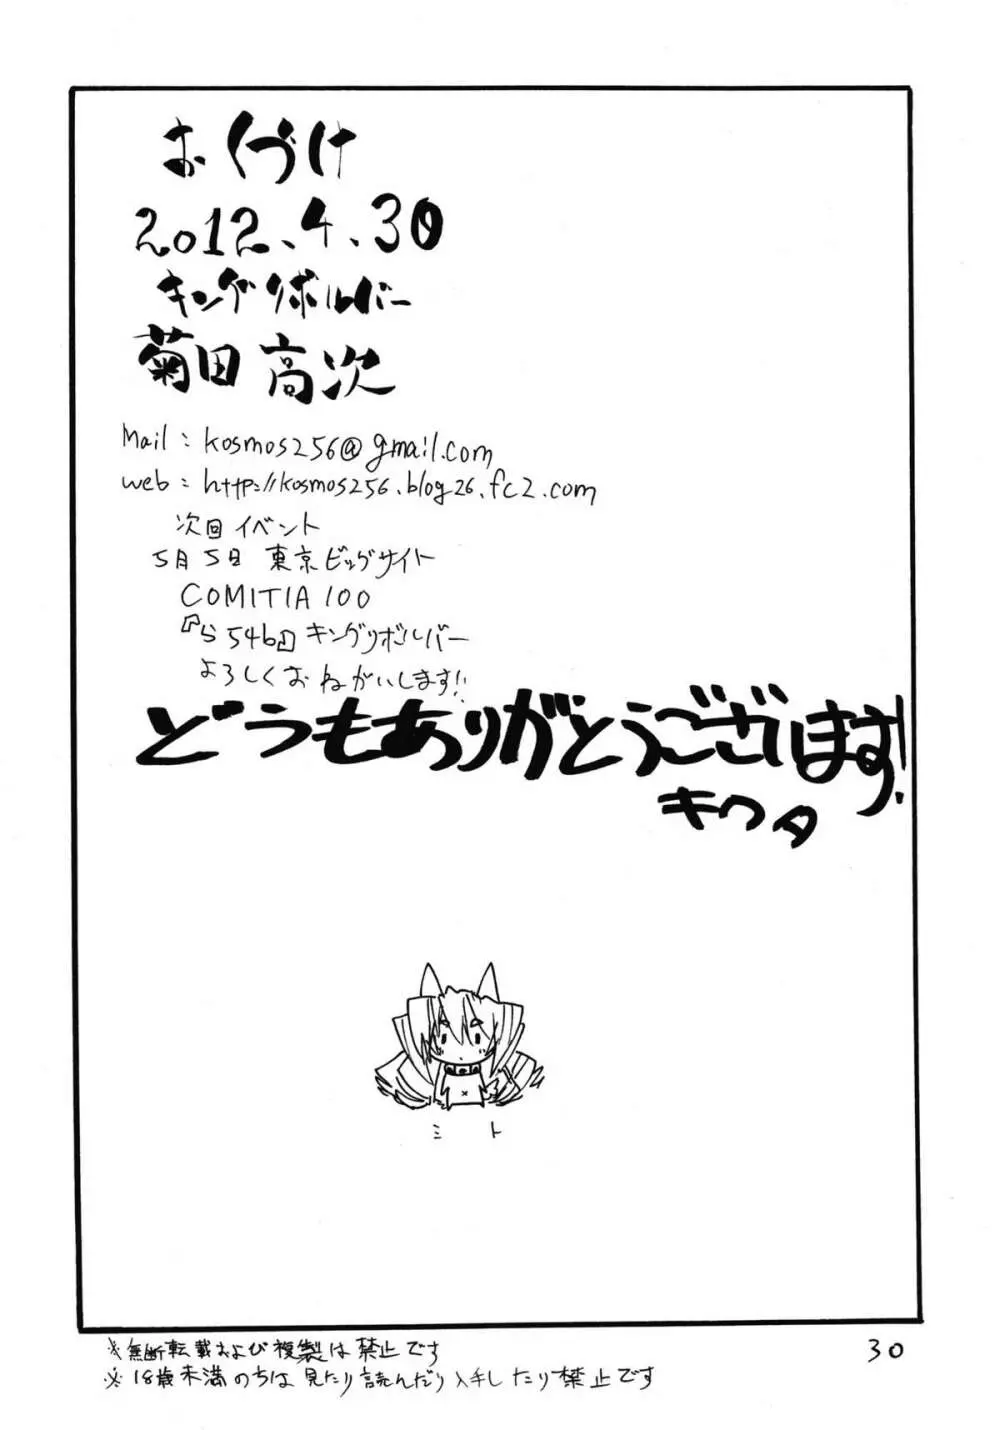 おくづけ
2012、4、30
キングリボルバー
菊田高次
Mail : kosmos256@gmail.com
web : http://kosmos256.blog26.fc2.com
次回イベント
5月5日 東京ビッグサイト
COMITIA 100
『ら54b』キングリボルバー
よろしくおねがいします!!
どうもありがとうございます!
キクタ
ミト
※無断転載および複製は禁止です
※18歳未満のちは見たり読んだり入手したり禁止です
30